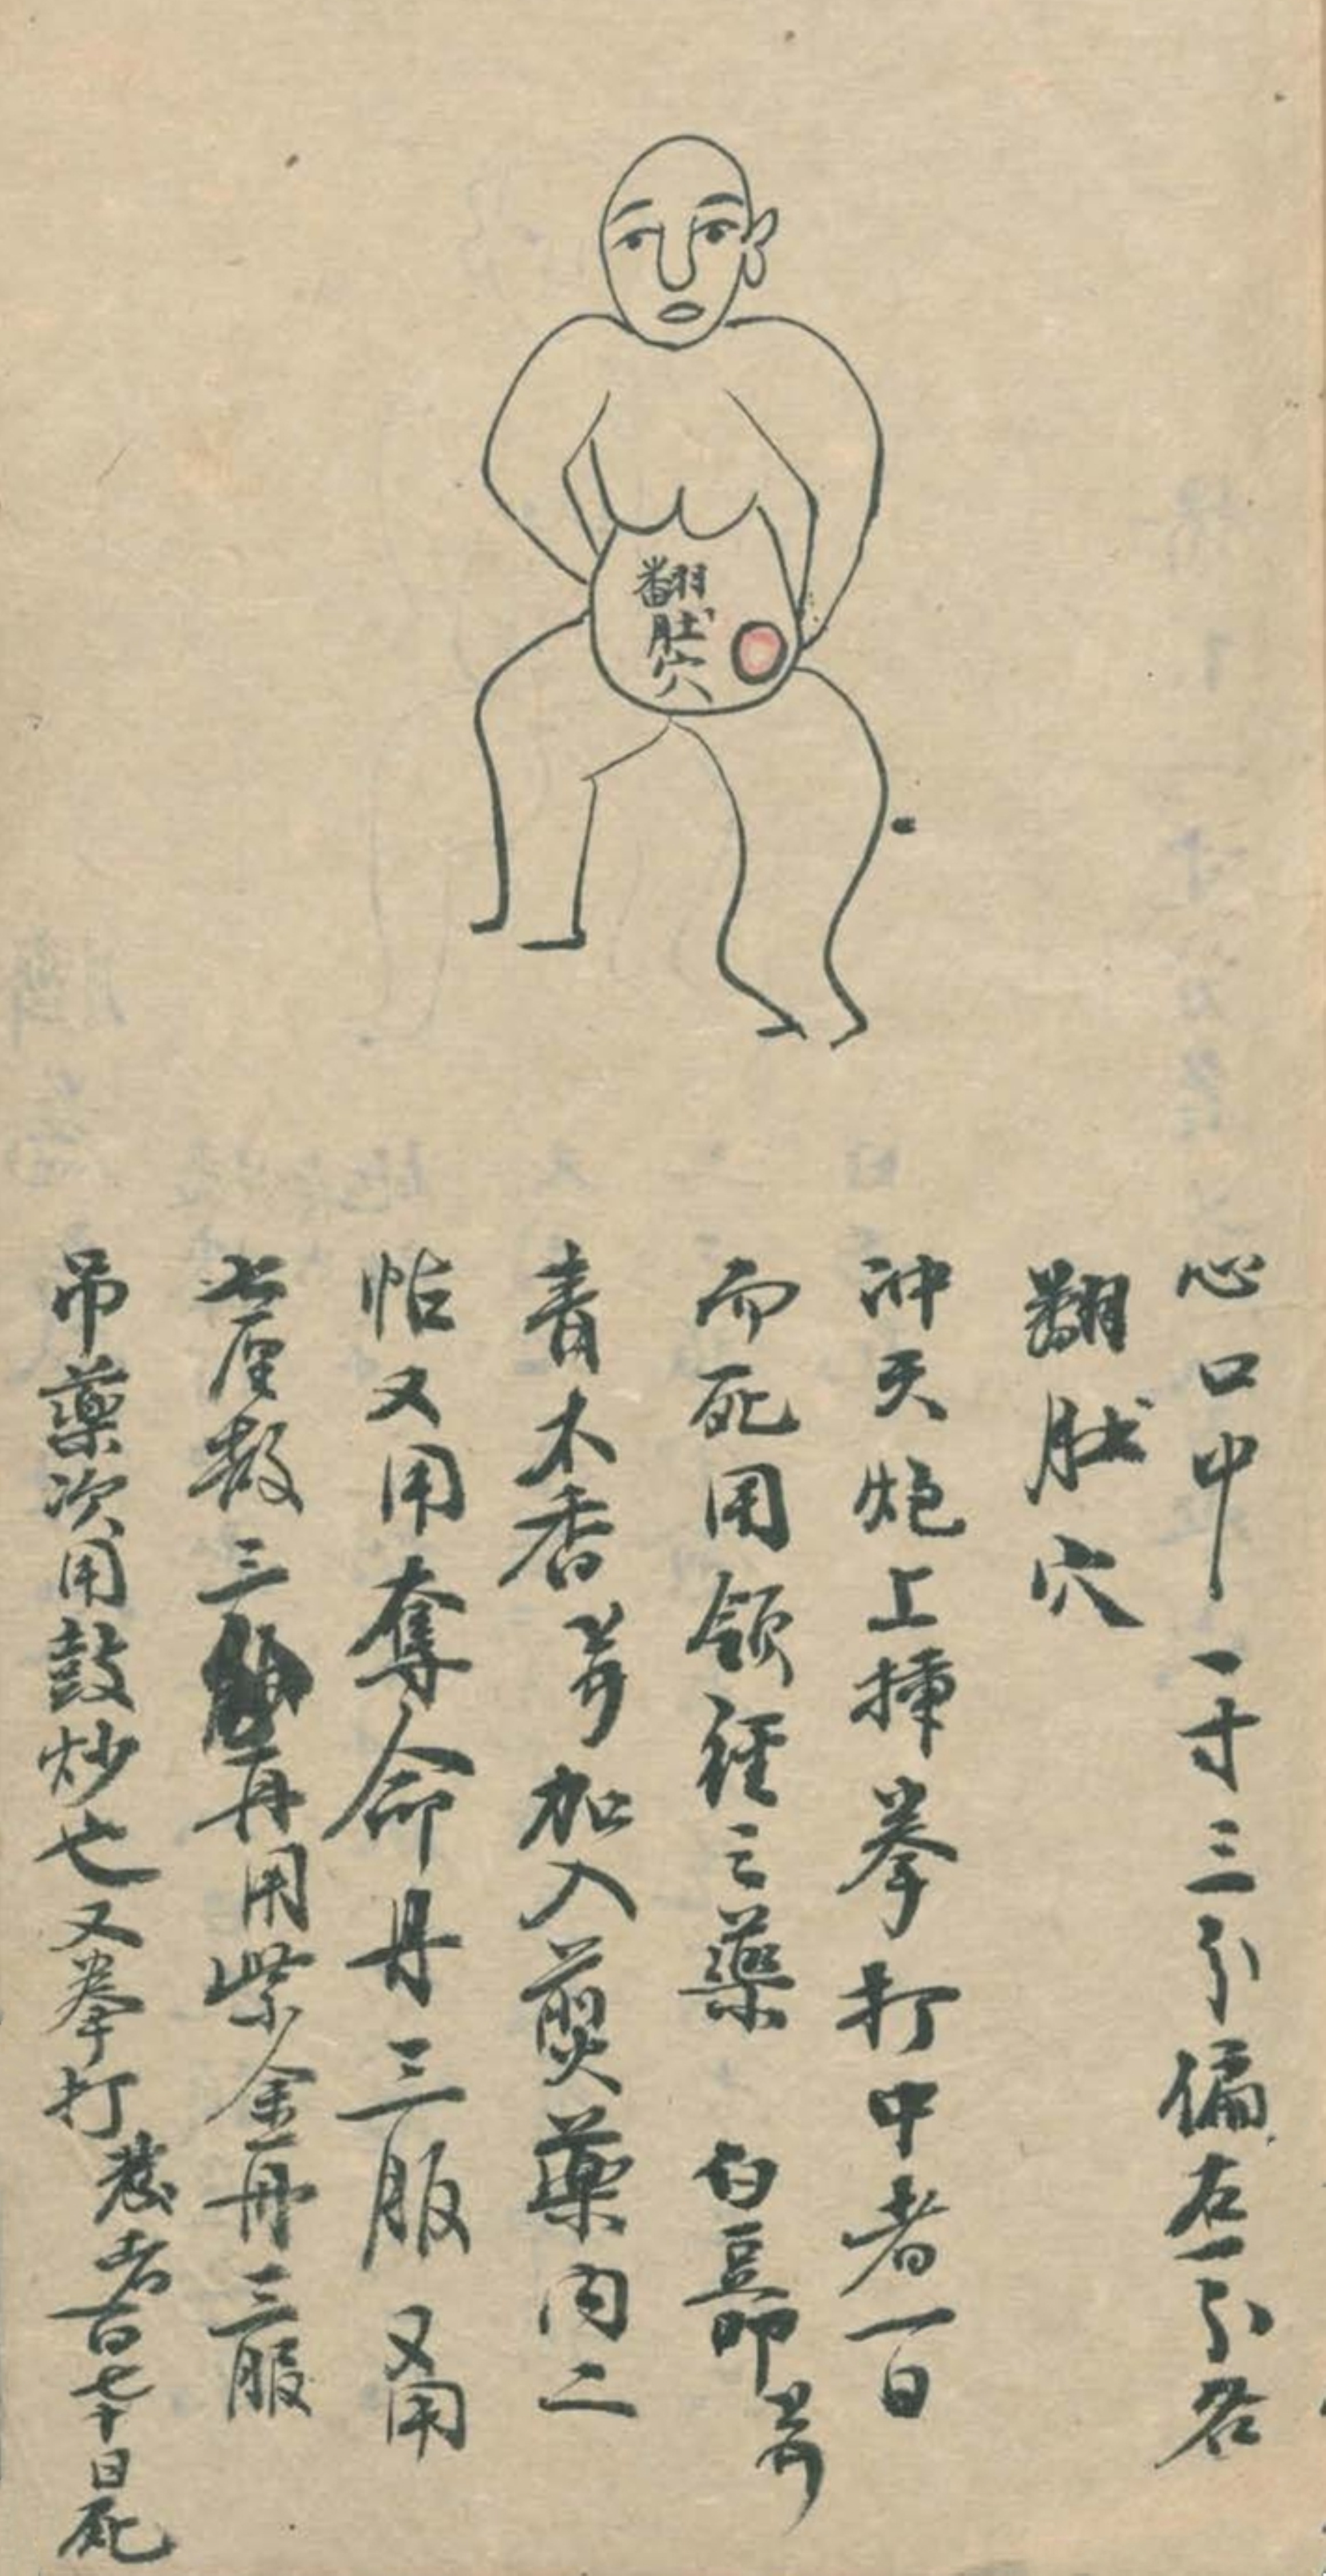 翻肚穴
心口中一寸三分偏右一分名
翻肚穴
冲天炮上揷拳打中者一日
而死用领経之薬 白豆叩
青木香 加入煎薬内二
帖又用奪命丹三服又用
七厘散三 再用紫金丹三服
吊薬次用鼓炒也又拳打 者百七十日死